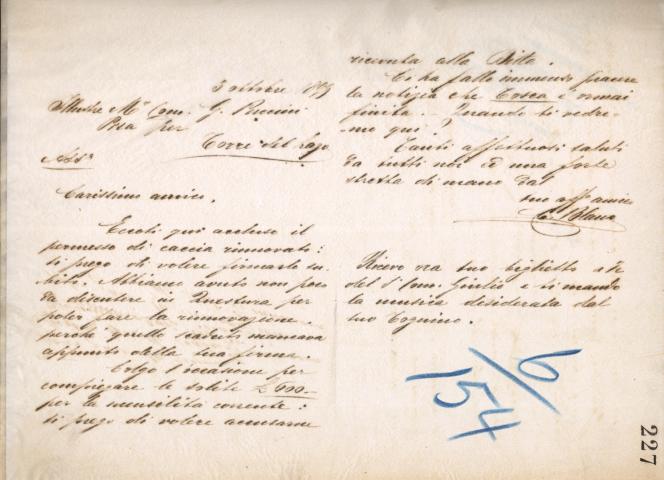 3 ottobre 1899
Illustre Mo Com. G. Puccini
Pisa per
Torre del Lago
Carissimo amico,
Eccoti qui accluso il
permesso di caccia rinnovato:
ti prego di volere firmarlo su-
bito. Abbiamo avuto non poco
da discutere in Questura per
poter fare la rinnovazione,
perché quello scaduto mancava
appunto della tua firma.
Colgo l'occasione per
compiegare le solite £ 600 -
per la mensilità corrente:
ti prego di volere accusarne
ricevuta alla Ditta.
Ci ha fatto immenso piacere
la notizia che Tosca è ormai
finita. Quando ti vedre-
mo qui.
Tanti affettuosi saluti
da tutti noi ed una forte
stretta di mano dal
tuo aff. amico
C. Blanc
Ricevo ora tuo biglietto
del Sr Com. Giulio e ti mando
la musica desiderata dal
tuo Cognino.
6/
154
227